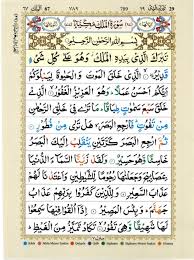 29 ٢٩ 789 ٧٨٩ 67 الملك ٦٧
سُوْرَةُ الْمُلْكِ مَكِّيَّةٌ
بِسْمِ اللّٰهِ الرَّحْمٰنِ الرَّحِيْمِ
تَبٰرَكَ الَّذِيْ بِيَدِهِ الْمُلْكُ وَهُوَ عَلٰى كُلِّ شَيْءٍ
قَدِيْرٌ الَّذِيْ خَلَقَ الْمَوْتَ وَالْحَيٰوةَ لِيَبْلُوَكُمْ
اَيُّكُمْ اَحْسَنُ عَمَلًا وَهُوَ الْعَزِيْزُ الْغَفُوْرُ الَّذِيْ
خَلَقَ سَبْعَ سَمٰوٰتٍ طِبَاقًا مَا تَرٰى فِيْ خَلْقِ الرَّحْمٰنِ
مِنْ تَفٰوُتٍ فَارْجِعِ الْبَصَرَ هَلْ تَرٰى مِنْ فُطُوْرٍ ثُمَّ
ارْجِعِ الْبَصَرَ كَرَّتَيْنِ يَنْقَلِبْ اِلَيْكَ الْبَصَرُ
خَاسِئًا وَّهُوَ حَسِيْرٌ وَلَقَدْ زَيَّنَّا السَّمَآءَ الدُّنْيَا
بِمَصَابِيْحَ وَجَعَلْنٰهَا رُجُوْمًا لِّلشَّيٰطِيْنِ وَاَعْتَدْنَا لَهُمْ
عَذَابَ السَّعِيْرِ وَلِلَّذِيْنَ كَفَرُوْا بِرَبِّهِمْ عَذَابُ
جَهَنَّمَ وَبِئْسَ الْمَصِيْرُ اِذَآ اُلْقُوْا فِيْهَا سَمِعُوْا
لَهَا شَهِيْقًا وَّهِيَ تَفُوْرُ تَكَادُ تَمَيَّزُ مِنَ الْغَيْظِ كُلَّمَآ